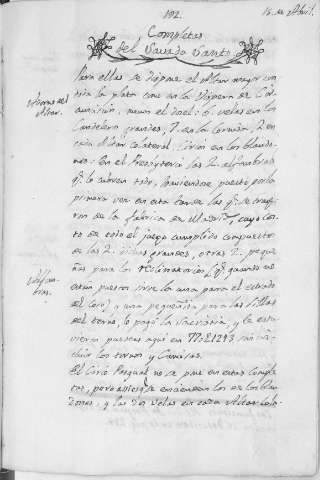 102.
16. de Abril.
Completas
del Savado Santo.
Adorno del
Altar.
Para ellas se dispone el Altar mayor con
toda la plata como en la Vispera de
menos el dosel: 6. velas en los
Candeleros grandes, 7. en la Corona, 2. en
cada Altar colateral. Cirios en los blando-
nes: En el Presbyterio las 2. alfombras
q.e lo cubren todo, haviendose puesto por la
primera vez en esta tarde las q.e se traxe-
ron de la fabrica de Madrid, cuyo cos-
to de todo el juego cumplido compuesto
de las 2. dichas grandes, otras 2. peque-
ñas para los reclinatorios, (q.e quando no
estan puestos sirve la una para el estrado
del Coro) y una pequeñita para las sillas
del terno, lo pagó la Sacristia, y le estu-
vieron puestas aqui en
los tornos y
Alfom-
bras.
El Cirio Pasqual no se pone en estas Comple-
tas, pero assi q.e se encienden los de los blan-
dones, y las dos velas en cada Altar cola-